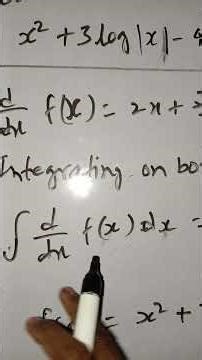 x² + 3 log |x| -
d/dx f(x) = 2x +
Integrating on bo
∫ d/dx f(x) dx =
= x² +